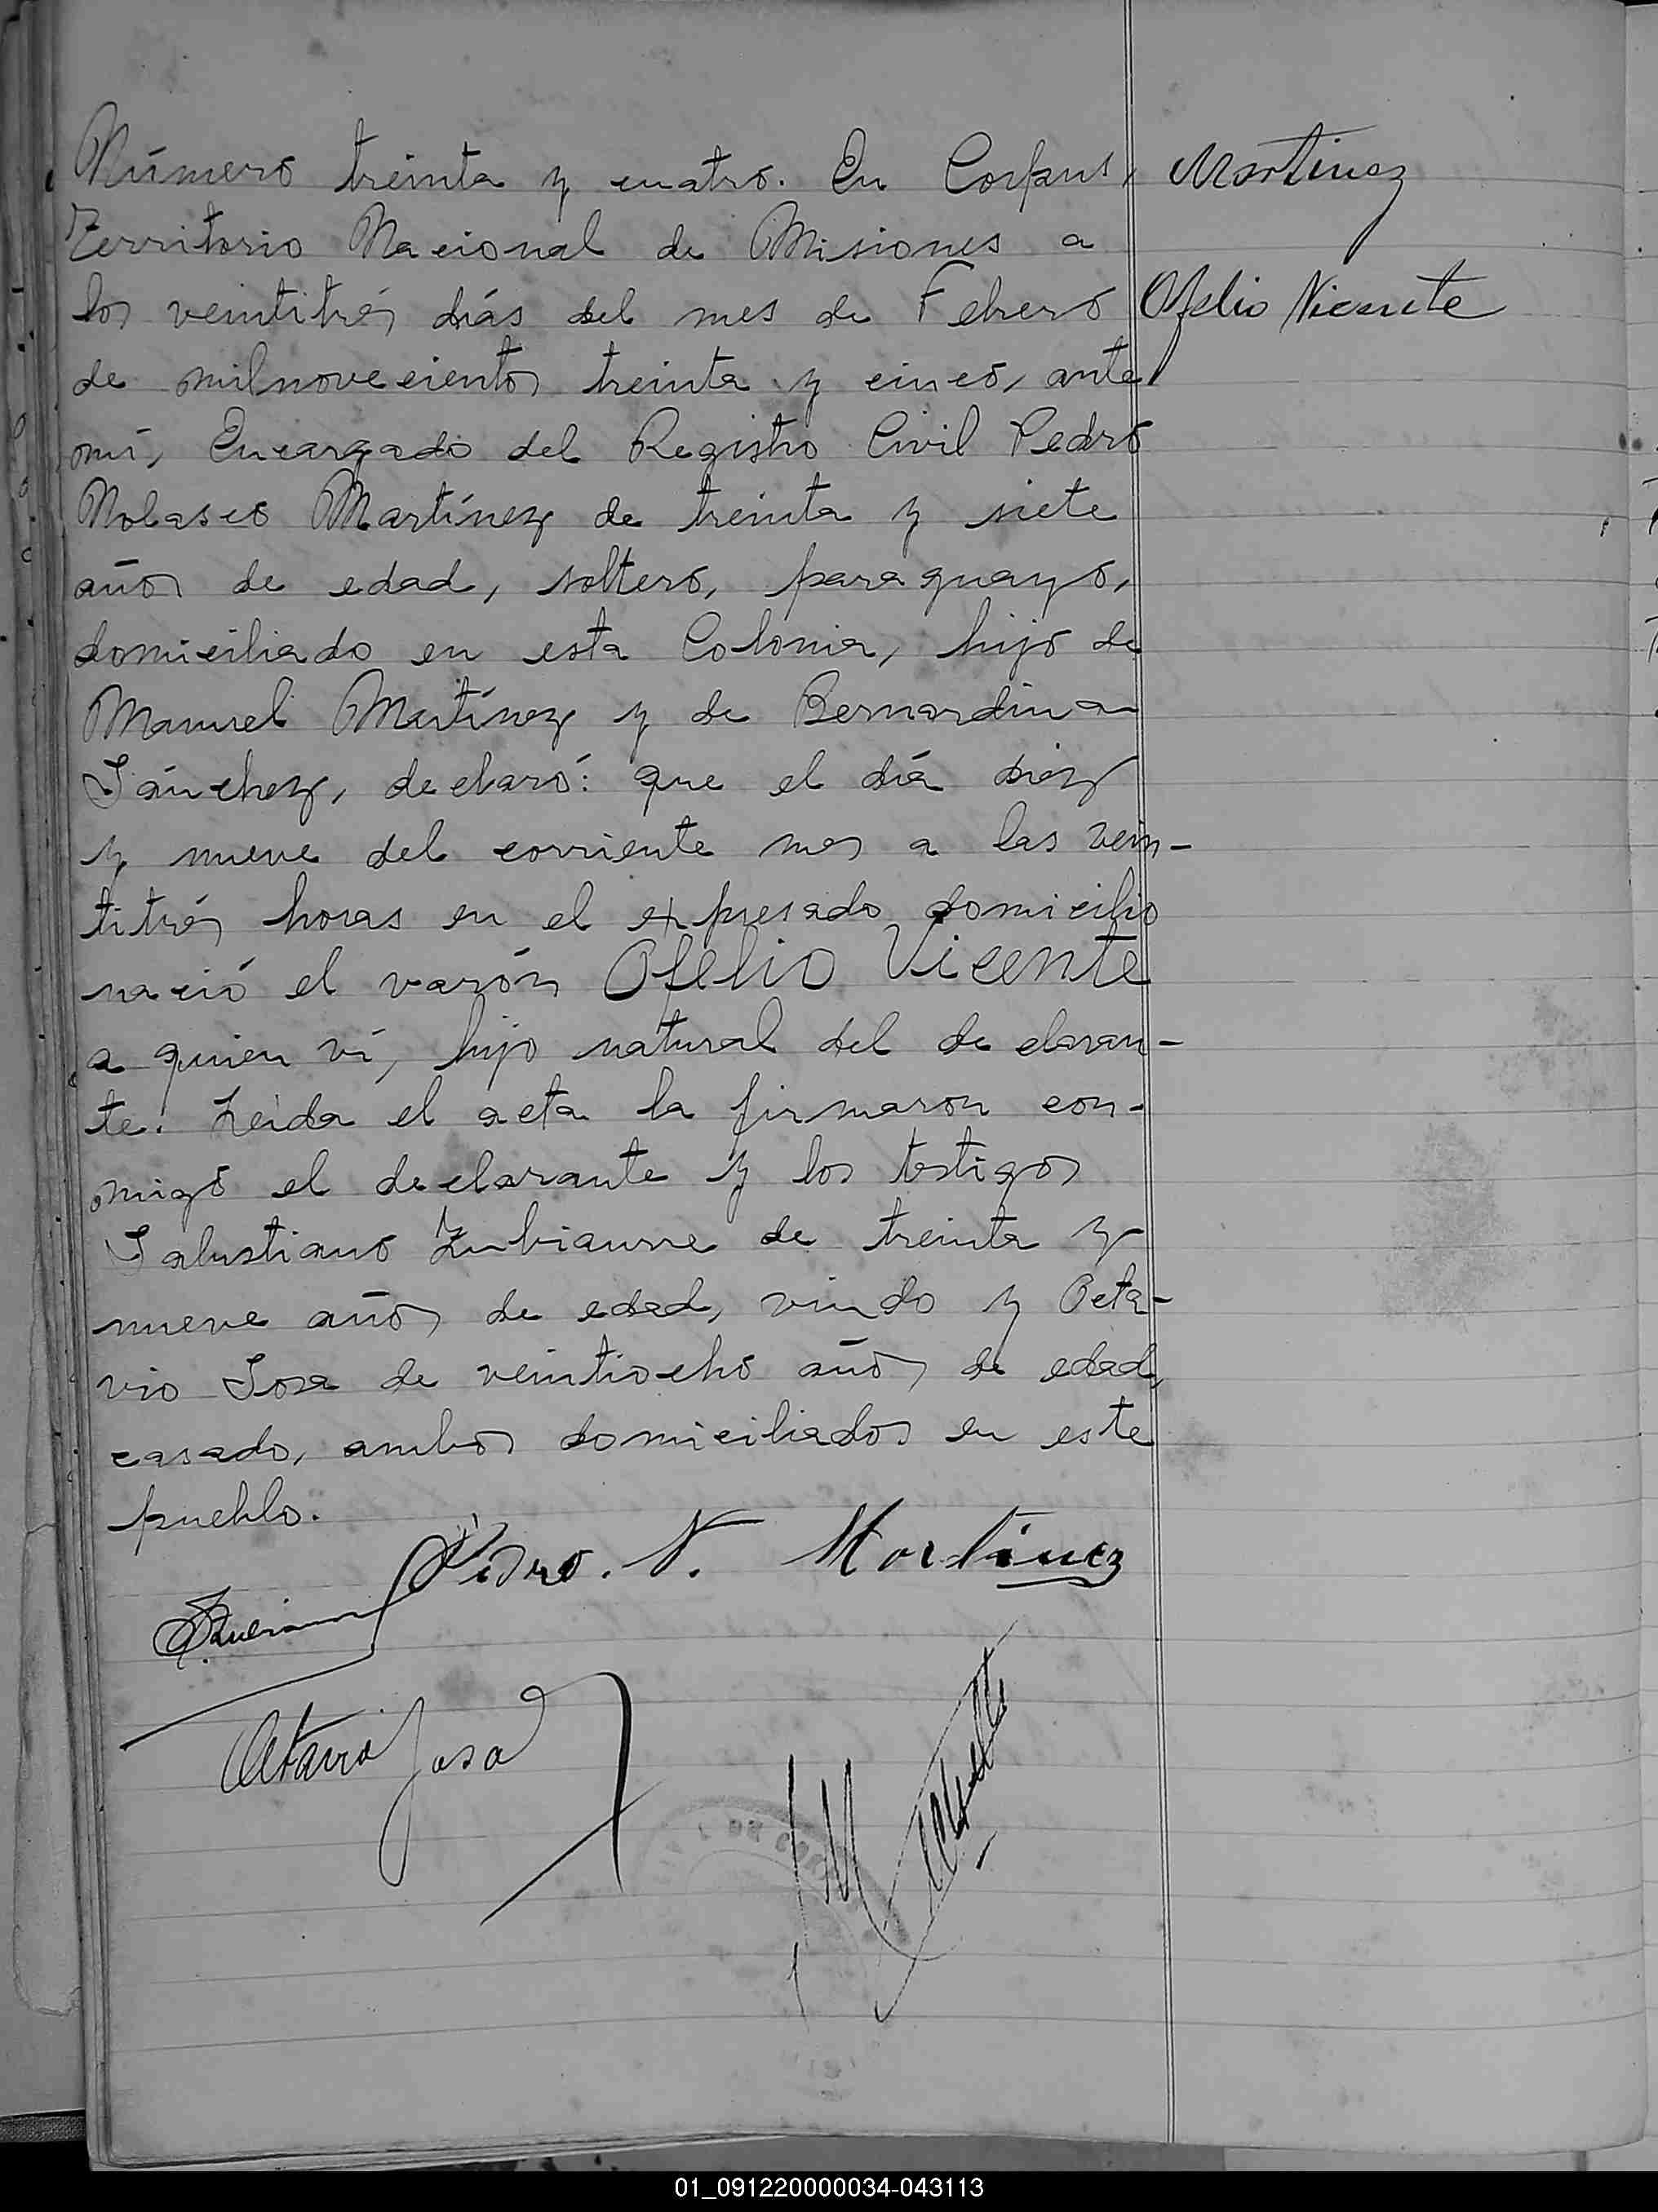 Número treinta y cuatro. En Corpus,
Territorio Nacional de Misiones a
los veintitrés días del mes de Febrero
de milnovecientos treinta y cinco, ante
mí, Encargado del Registro Civil Pedro
Nolasco Martínez de treinta y siete
años de edad, soltero, paraguayo,
domiciliado en esta Colonia, hijo de
Manuel Martínez y de Bernardina
Sánchez, declaró: que el día diez
y nueve del corriente mes a las vein-
titrés horas en el expresado domicilio
nació el varón Ofelio Vicente
a quien ví, hijo natural del declaran-
te. Leída el acta la firmaron con-
migo el declarante y los testigos
Salustiano Zubiaurre de treinta y
nueve años de edad, viudo y Octa-
vio Sosa de veintiocho años de edad,
casado, ambos domiciliados en este
pueblo.
Martinez
Ofelio Vicente
Pedro. N. Martinez
Octavio Sosa
DE CO
01_091220000034-043113